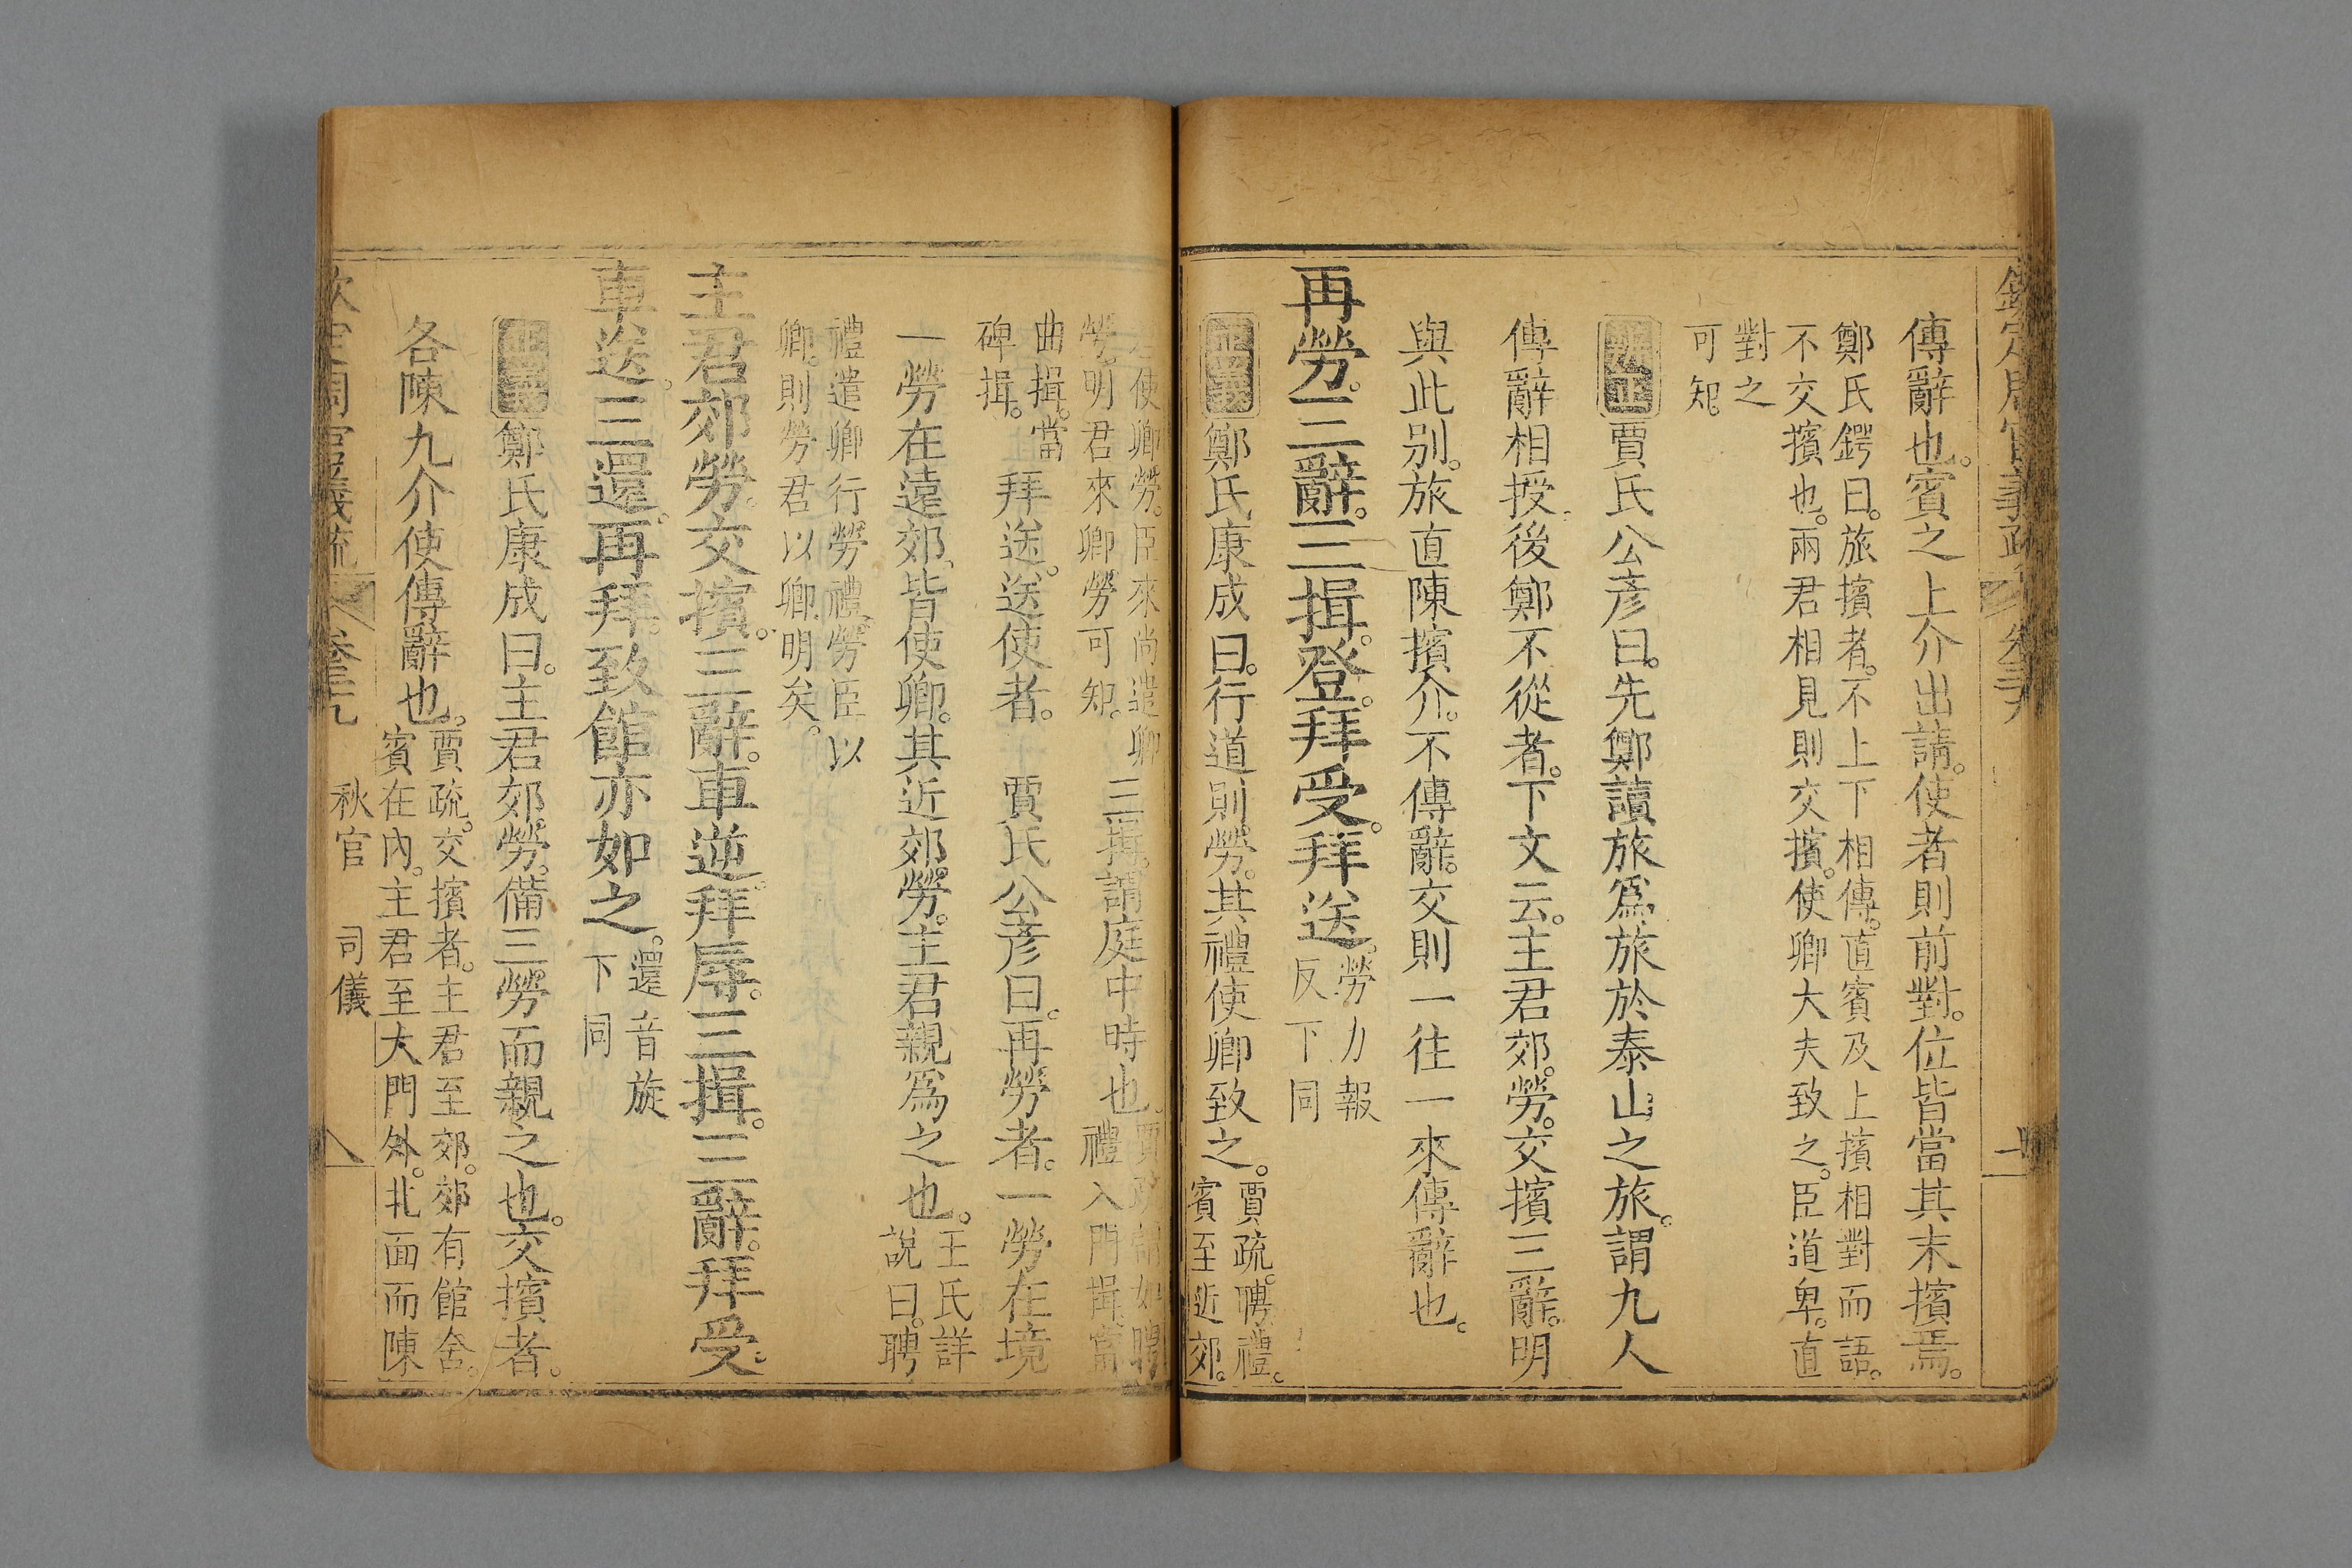 欽定周官義疏 卷三九
傳辭也。賓之上介出請。使者則前對。位皆當其末擯焉。
鄭氏鍔曰。旅擯者。不上下相傳。直賓及上擯相對而語。
不交擯也。兩君相見則交擯。使卿大夫致之。臣道卑。直
對之
可知。
辨正賈氏公彦曰。先鄭讀旅爲旅於泰山之旅。謂九人
傳辭相授。後鄭不從者。下文云。主君郊勞。交擯三辭。明
與此别。旅直陳擯介。不傳辭。交則一往一來傳辭也。
再勞。三辭。三揖。登。拜受。拜送。勞力報
反下同
正義鄭氏康成曰。行道則勞。其禮使卿致之。賈疏。聘禮。
賓至近郊。
使卿勞。臣來尚遣卿
勞。明君來卿勞可知。三揖。謂庭中時也。賈疏如聘
禮入門揖。當
曲揖。當
碑揖。拜送。送使者。 賈氏公彦曰。再勞者。一勞在境
一勞在遠郊。皆使卿。其近郊勞。主君親爲之也。王氏詳
說曰。聘
禮遣卿行勞禮。勞臣以
卿。則勞君以卿明矣。
主君郊勞。交擯。三辭。車逆。拜辱。三揖。三辭。拜受。
車送。三還。再拜。致館亦如之。還音旋
下同
正義鄭氏康成曰。主君郊勞。備三勞而親之也。交擯者。
各陳九介使傳辭也。賈疏。交擯者。主君至郊。郊有館舍。
賓在內。主君至大門外。北面而陳
欽定周官義疏 卷三九 秋官 司儀 八